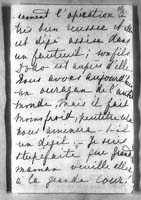 cement l'opération a
très bien réussi et elle
est déjà assise dans
un fauteuil ; son fils
Jado est auprès d'elle
Nous avons aujourd'hui
un ouragan de l'autre
monde, mais il fait
moins froid, peut être cela
nous amènera-t-il
un dégel. - Je suis
stupéfaite que grand
maman veuille aller
à la grande cour!